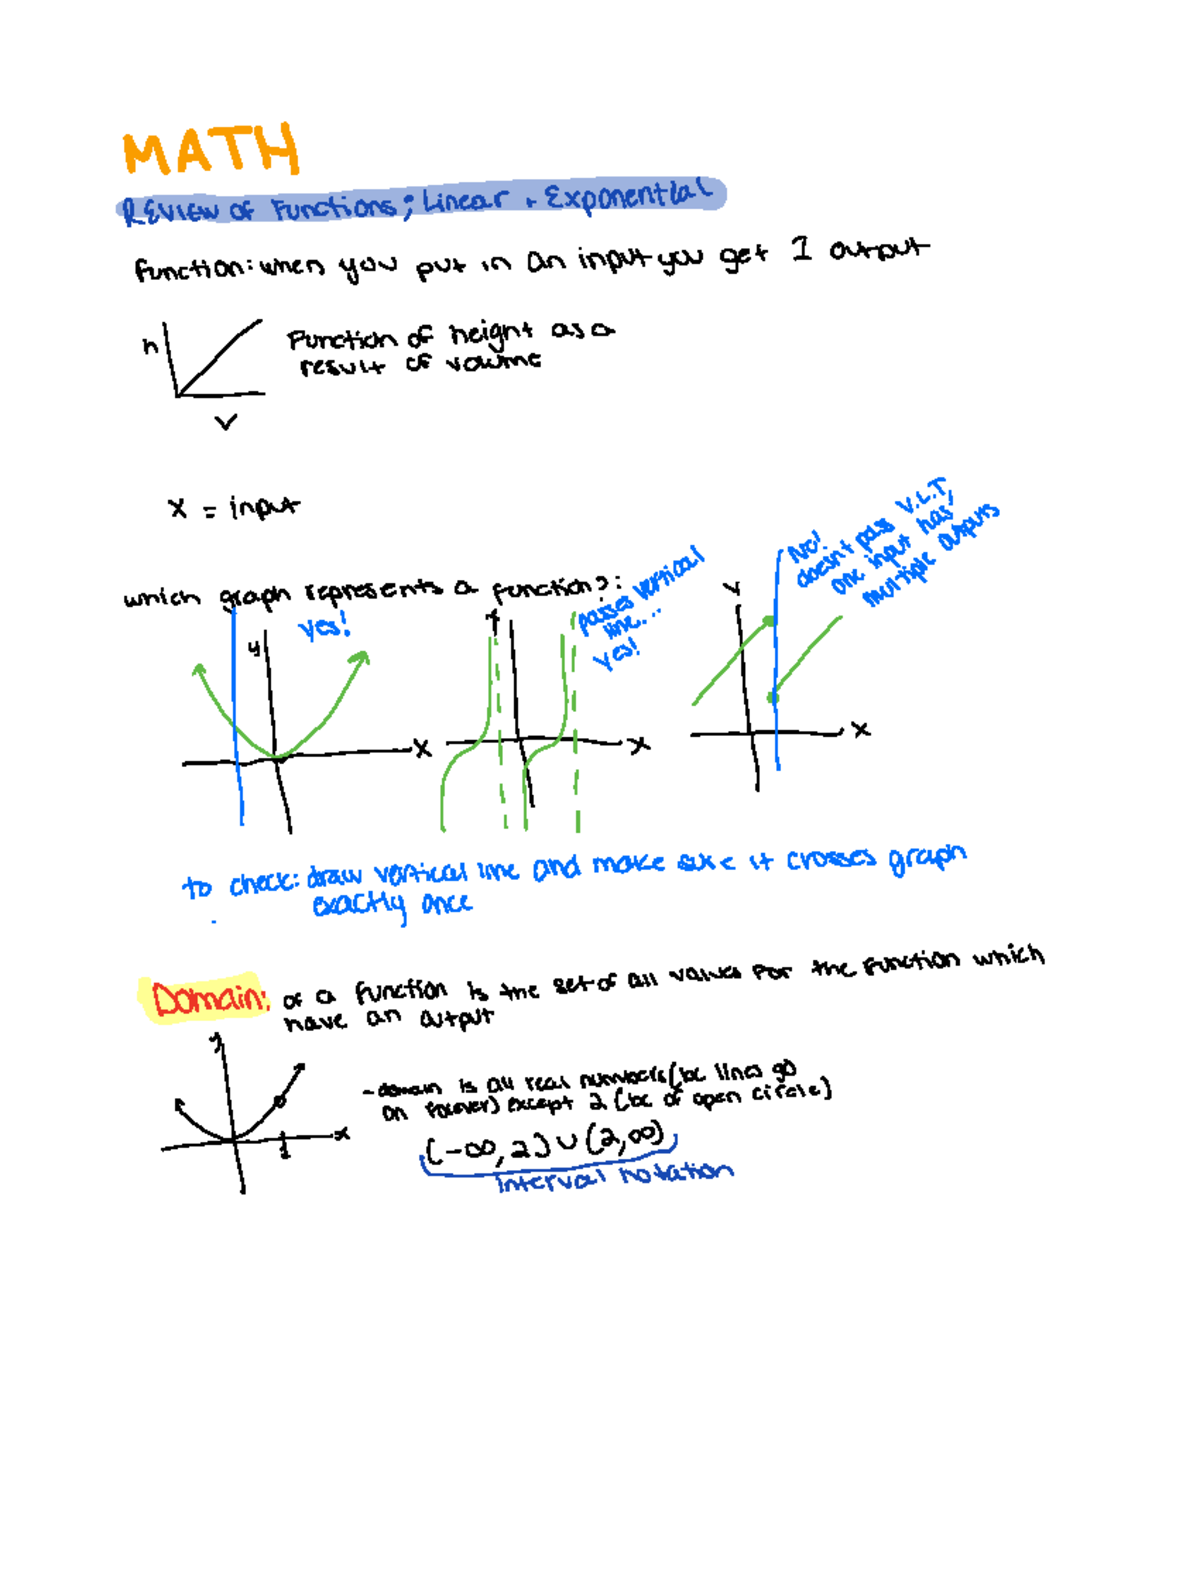 MATH
REVIEW OF FUNCTIONS; Linear + Exponential
Function: when you put in an input you get 1 output
h
Function of height as a
result of volume
V
X = input
which graph represents a function?:
yes!
passes vertical
line...
yes!
No!
doesn't pass V.L.T,
one input has
multiple outputs
y
X
X
Y
X
to check: draw vertical line and make sure it crosses graph
exactly once
Domain: of a function is the set of all values for the function which
have an output
y
x
- domain is all real numbers (bc lines go
on forever) except 2 (bc of open circle)
(-∞, 2) ∪ (2, ∞)
interval notation